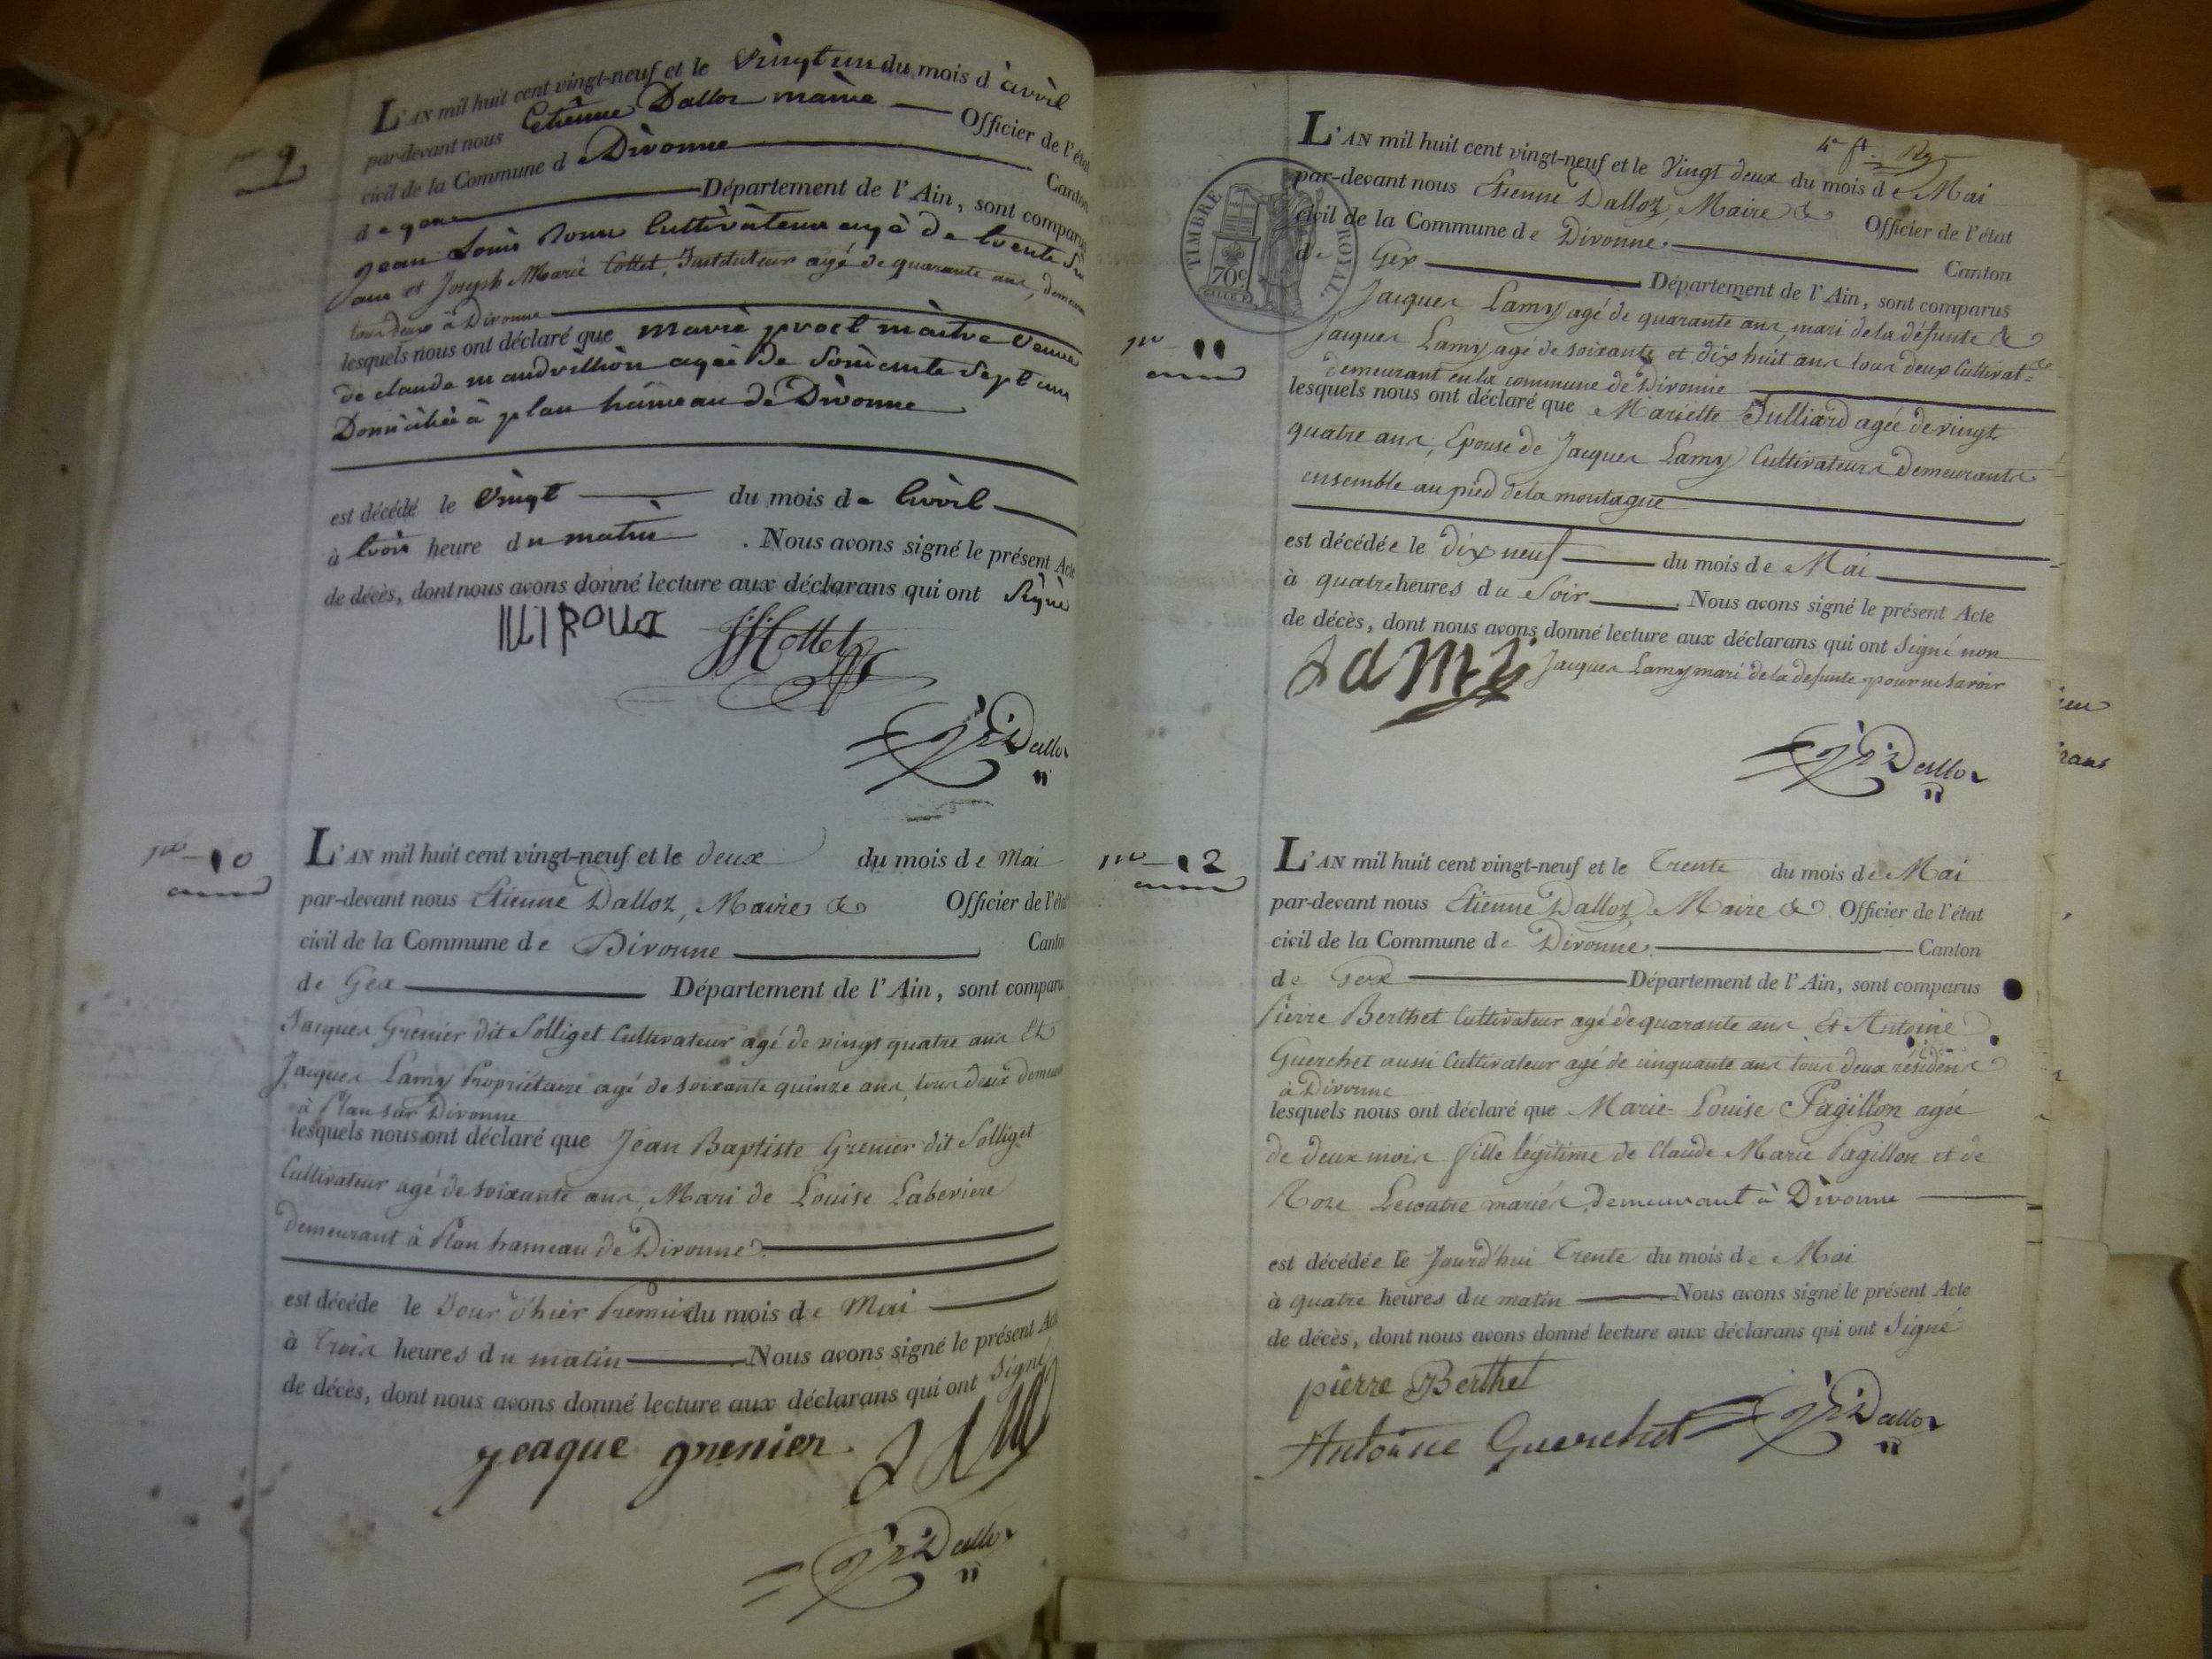 9
L'AN mil huit cent vingt-neuf et le vingt un du mois d'avril
par-devant nous Etienne Dalloz maire Officier de l'état
civil de la Commune d Divonne Canton
de gex Département de l'Ain, sont comparus
jean Louis Roux Cultivateur agé de trente six
ans et Joseph Marie Cottet, Instituteur agé de quarante ans, demeurant
tous deux à Divonne
lesquels nous ont déclaré que marie maitre veuve
de claude agée de soixante sept ans
Domiciliée à plan hameau de Divonne
est décédé le vingt du mois de avril
à trois heure du matin . Nous avons signé le présent Acte
de décès, dont nous avons donné lecture aux déclarans qui ont signé
Roux Cottet
Dalloz
10
L'AN mil huit cent vingt-neuf et le deux du mois de Mai
par-devant nous Etienne Dalloz, Maire & Officier de l'état
civil de la Commune de Divonne Canton
de Gex Département de l'Ain, sont comparus
Jacques Grenier dit Solliget Cultivateur agé de vingt quatre ans Et
Jacques Lamy Propriétaire agé de soixante quinze ans, tous deux demeurant
à Plan sur Divonne
lesquels nous ont déclaré que Jean Baptiste Grenier dit Solliget
Cultivateur agé de soixante ans, Mari de Louise Laberiere
demeurant à Plan hameau de Divonne.
est décéde le Jour d'hier Premier du mois de Mai
à Trois heures du matin Nous avons signé le présent Acte
de décès, dont nous avons donné lecture aux déclarans qui ont Signé
jeaque grenier
Dalloz
TIMBRE ROYAL
70c
11
L'AN mil huit cent vingt-neuf et le Vingt deux du mois de Mai
par-devant nous Etienne Dalloz, Maire & Officier de l'état
civil de la Commune de Divonne. Canton
de Gex Département de l'Ain, sont comparus
Jacques Lamy agé de quarante ans, mari de la défunte &
Jacques Lamy agé de soixante et dix huit ans tous deux Cultivat=
demeurant en la commune de Divonne
lesquels nous ont déclaré que Mariette Julliard agée de vingt
quatre ans, Epouse de Jacques Lamy Cultivateurs demeurants
ensemble au pied de la montagne
est décédée le dix neuf du mois de Mai
à quatre heures du Soir . Nous avons signé le présent Acte
de décès, dont nous avons donné lecture aux déclarans qui ont Signé non
Lamy Jacques Lamy mari de la defunte pour ne savoir
Dalloz
12
L'AN mil huit cent vingt-neuf et le Trente du mois de Mai
par-devant nous Etienne Dalloz Maire & Officier de l'état
civil de la Commune de Divonne. Canton
de Gex Département de l'Ain, sont comparus
Pierre Berthet Cultivateur agé de quarante ans Et Antoine
Guerchet aussi Cultivateur agé de cinquante ans tous deux résidens
à Divonne
lesquels nous ont déclaré que Marie-Louise Pagillon agée
de deux mois fille légitime de Claude Marie Pagillon et de
Roze Lecoutre mariés, demeurant à Divonne
est décédée le Jourd'hui Trente du mois de Mai
à quatre heures du matin Nous avons signé le présent Acte
de décès, dont nous avons donné lecture aux déclarans qui ont Signé
pierre Berthet
Antoine Guerchet Dalloz